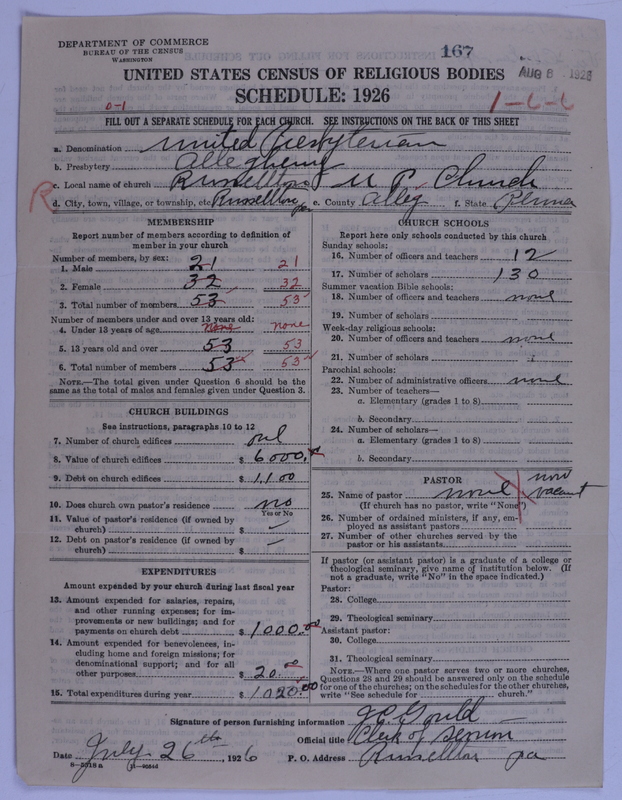 DEPARTMENT OF COMMERCE
BUREAU OF THE CENSUS
WASHINGTON
167
AUG 6 1926
UNITED STATES CENSUS OF RELIGIOUS BODIES
SCHEDULE: 1926
0-1
1-6-6
FILL OUT A SEPARATE SCHEDULE FOR EACH CHURCH. SEE INSTRUCTIONS ON THE BACK OF THIS SHEET
a. Denomination United Presbyterian
b. Presbytery Allegheny
c. Local name of church Russellton U P. Church
R d. City, town, village, or township, etc. Russellton Pa e. County Alleg f. State Penna
MEMBERSHIP
Report number of members according to definition of
member in your church
Number of members, by sex:
1. Male 21 21
2. Female 32 32
3. Total number of members 53 53
Number of members under and over 13 years old:
4. Under 13 years of age none none
5. 13 years old and over 53 53
6. Total number of members 53 53
NOTE.—The total given under Question 6 should be the
same as the total of males and females given under Question 3.
CHURCH BUILDINGS
See instructions, paragraphs 10 to 12
7. Number of church edifices one
8. Value of church edifices $ 6000.00
9. Debt on church edifices $ 1,100
10. Does church own pastor's residence no
Yes or No
11. Value of pastor's residence (if owned by
church) $ —
12. Debt on pastor's residence (if owned by
church) $ —
EXPENDITURES
Amount expended by your church during last fiscal year
13. Amount expended for salaries, repairs,
and other running expenses; for im-
provements or new buildings; and for
payments on church debt $ 1000.00
14. Amount expended for benevolences, in-
cluding home and foreign missions; for
denominational support; and for all
other purposes $ 20.00
15. Total expenditures during year $ 1020.00
CHURCH SCHOOLS
Report here only schools conducted by this church
Sunday schools:
16. Number of officers and teachers 12
17. Number of scholars 130
Summer vacation Bible schools:
18. Number of officers and teachers none
19. Number of scholars
Week-day religious schools:
20. Number of officers and teachers none
21. Number of scholars
Parochial schools:
22. Number of administrative officers none
23. Number of teachers—
a. Elementary (grades 1 to 8)
b. Secondary
24. Number of scholars—
a. Elementary (grades 1 to 8)
b. Secondary
PASTOR
25. Name of pastor none now vacant
(If church has no pastor, write "None")
26. Number of ordained ministers, if any, em-
ployed as assistant pastors
27. Number of other churches served by the
pastor or his assistants
If pastor (or assistant pastor) is a graduate of a college or
theological seminary, give name of institution below. (If
not a graduate, write "No" in the space indicated.)
Pastor:
28. College
29. Theological seminary
Assistant pastor:
30. College
31. Theological seminary
NOTE.—Where one pastor serves two or more churches,
Questions 28 and 29 should be answered only on the schedule
for one of the churches; on the schedules for the other churches,
write "See schedule for church."
Signature of person furnishing information J C Gould
Official title Clerk of Session
Date July 26th, 1926 P. O. Address Russellton Pa